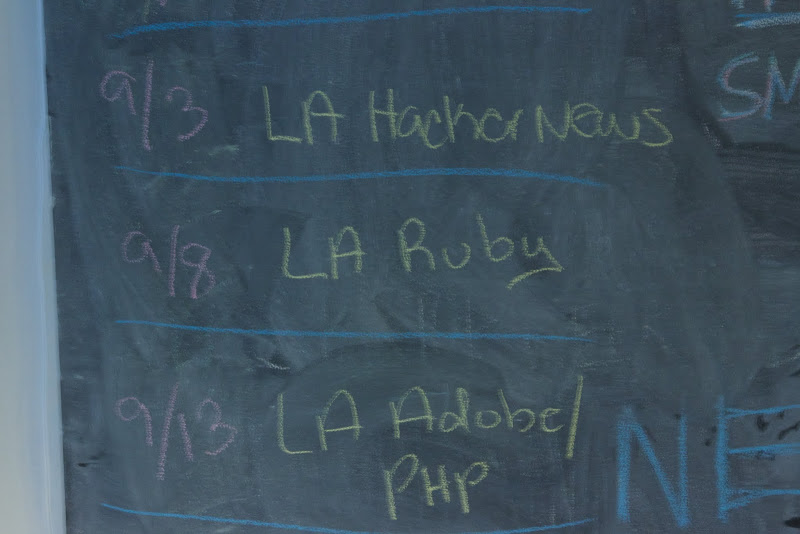 9/3 LA HackerNews
SM
9/8 LA Ruby
9/13 LA Adobe/
PHP
NE